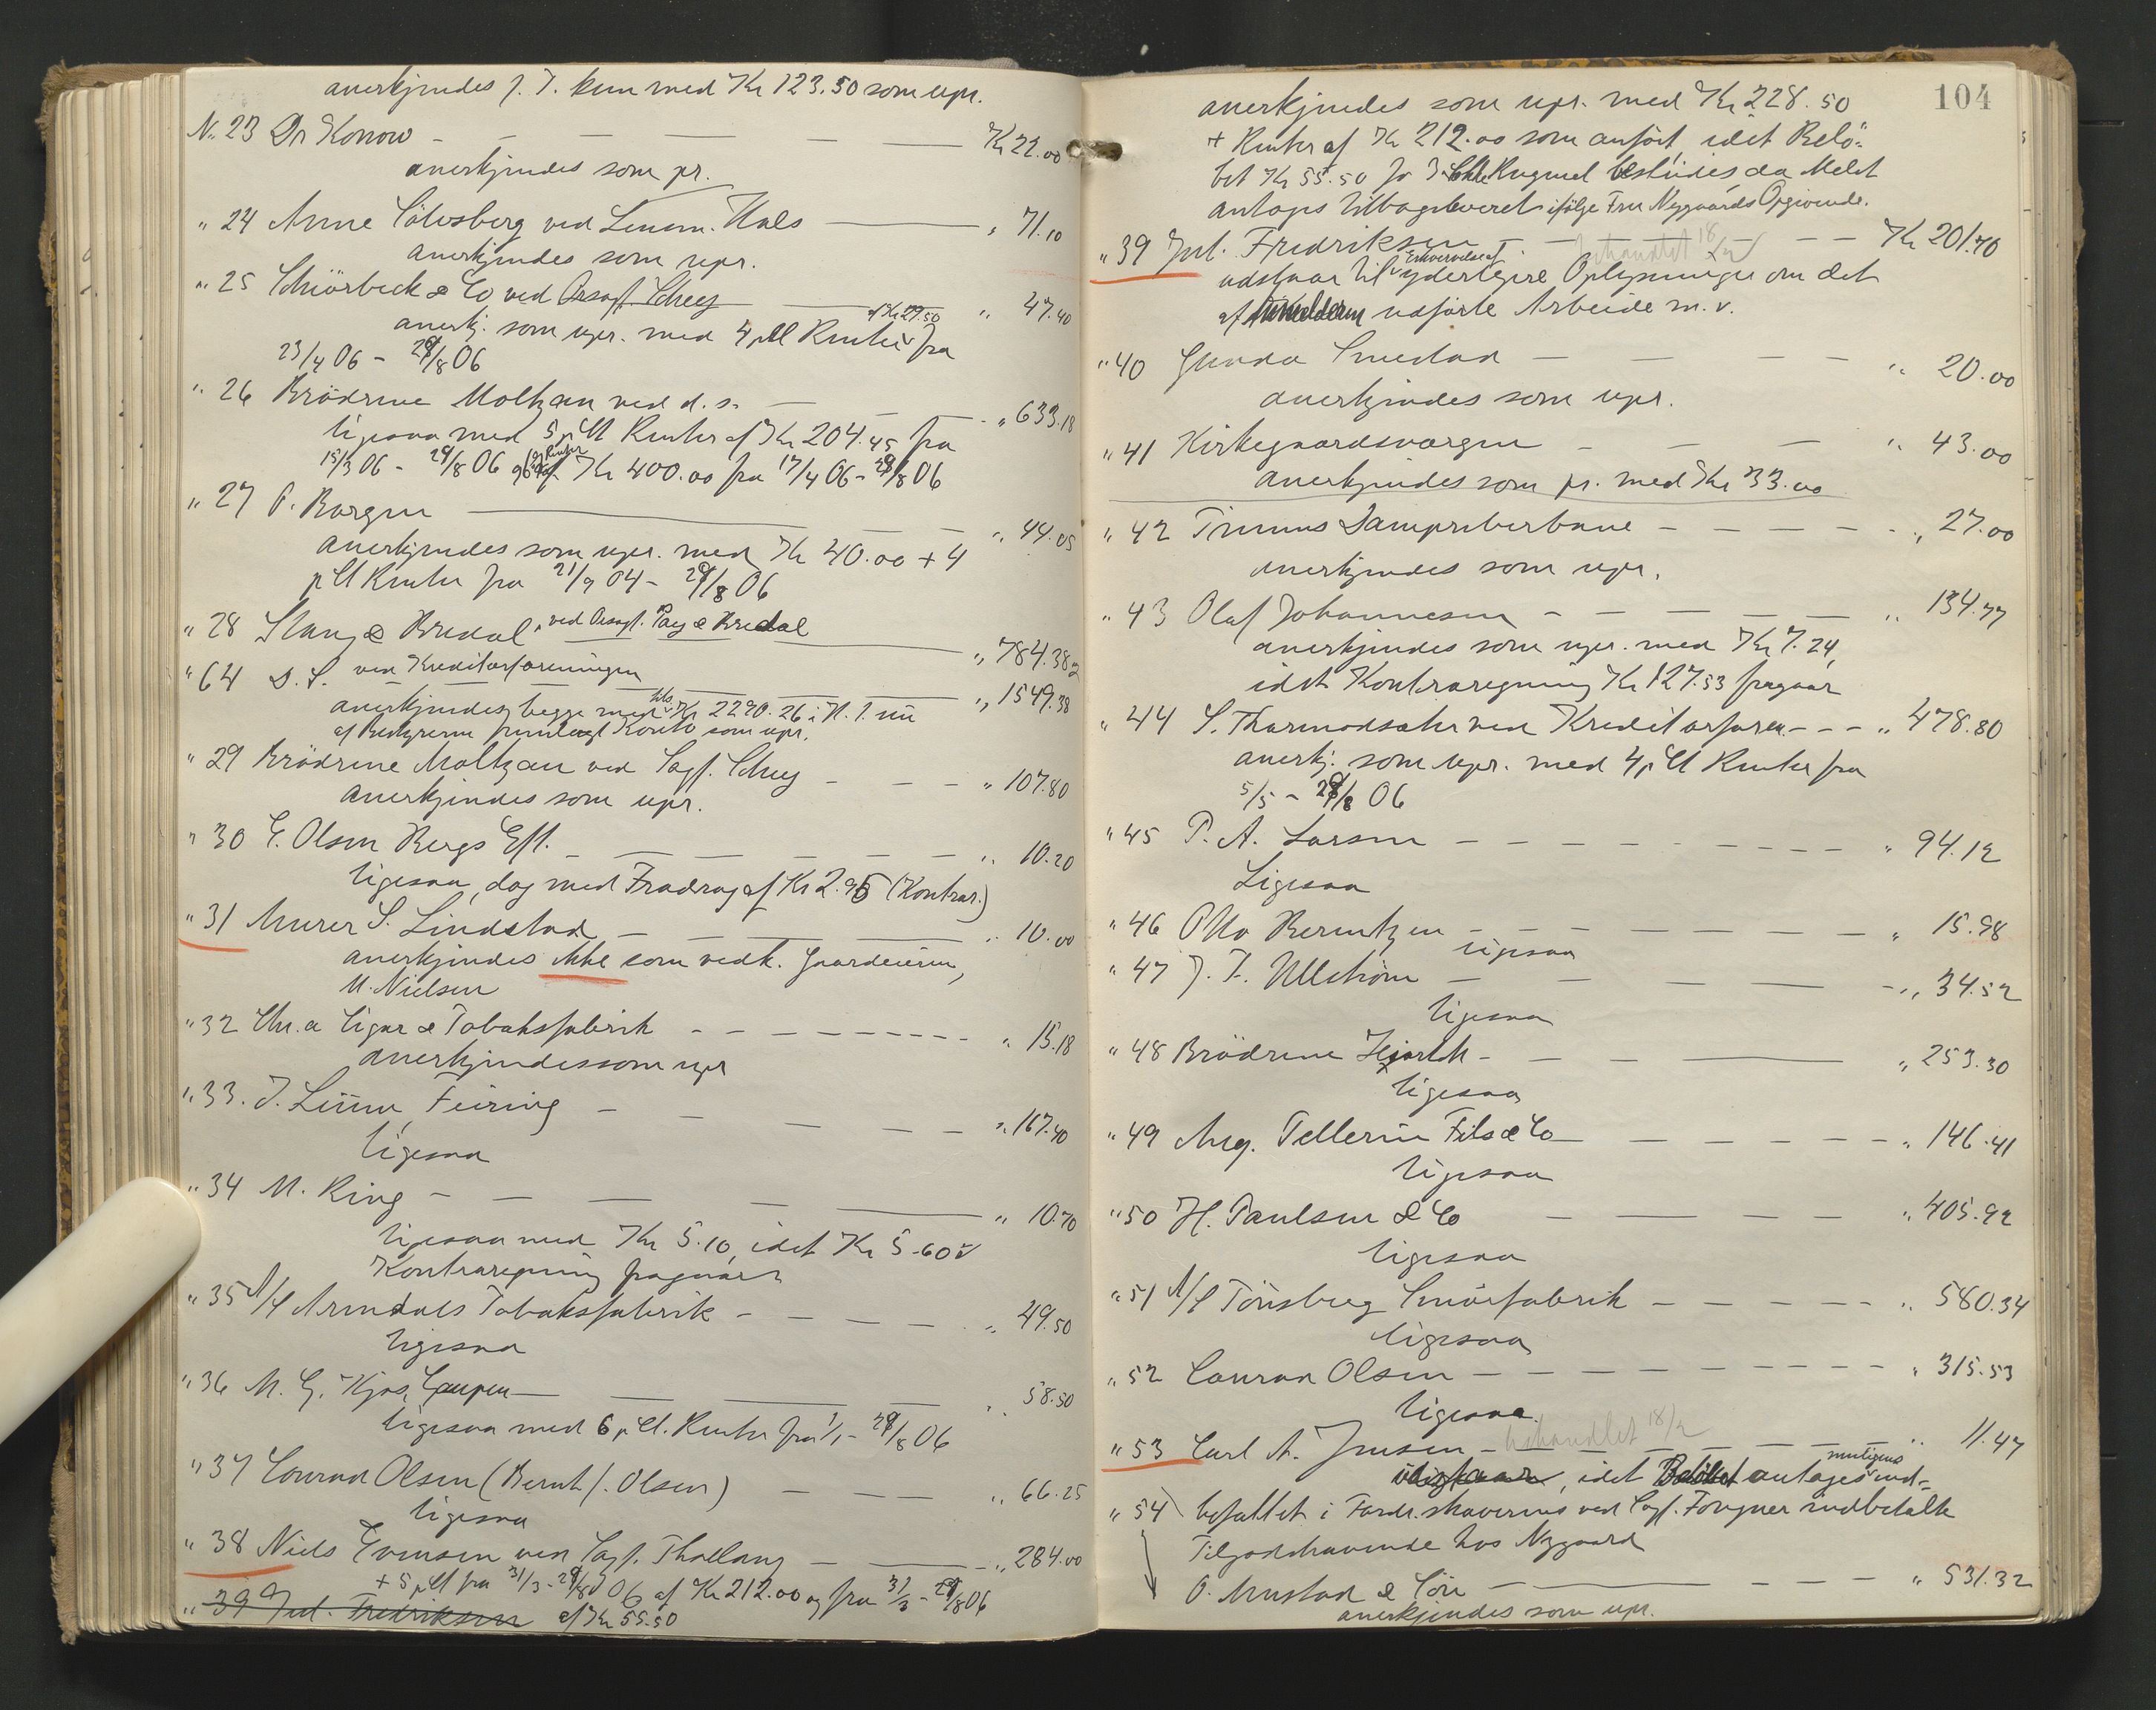 anerkjendes f. T. kun med Kr 123.50 som upr.
No. 23 Dr Konow - - - - Kr 22.00
anerkjendes som pr.
" 24 Anne Sölvsberg ved Lensm. Hals - " 71.10
anerkjendes som upr.
" 25 Schiörbeck & Co ved Orsagf. Scheey - " 47.40
anerkj. som upr. med 4 pCt Renter af Kr 27.50 fra
23/4 06 - 29/8 06
" 26 Brödrene Moltzau ved d. s. - - - " 633.18
ligesaa med 5 pCt Renter af Kr 204.45 fra
15/3 06 - 29/8 06 og Renter af Kr 400.00 fra 17/4 06 - 29/8 06
" 27 P. Borgen - - - " 44.05
anerkjendes som upr. med Kr 40.00 + 4
pCt Renter fra 21/9 04 - 29/8 06
" 28 Stang & Bredal, ved Orsagf. Paey & Bredal - " 784.38
" 64 D. S. ved Kreditorforeningen - " 1549.38
anerkjendes begge med tils. Kr 2290.26 i H. t. en
af Bestyreren fremlagt Konto som upr.
" 29 Brödrene Moltzau ved Sagf. Scheey - - - " 107.80
anerkjendes som upr.
" 30 E. Olsen Bergs Eft. - - - - - " 10.20
ligesaa, dog med Fradrag af Kr 2.95 (Kontrar.)
" 31 Murer S. Lindstad - - - " 10.00
anerkjendes ikke som vedk. Gaardeieren,
M. Nielsen
" 32 Chr.a Cigar & Tobaksfabrik - - - - - - - - " 15.18
anerkjendes som upr
" 33. J. Linn, Feiring - - - - - " 167.40
ligesaa
" 34 M. Ring - - - - - " 10.70
ligesaa med Kr 5.10, idet Kr 5.60 i
Kontraregning fragaar
" 35 A/S Arendals Tobaksfabrik - - - - - " 49.50
ligesaa
" 36 M. G. Kjos, - - - " 58.50
ligesaa med 6 pCt. Renter fra 1/1 - 29/8 06
" 37 Conrad Olsen (Bernt J. Olsen) - - - " 66.25
ligesaa
" 38 Niels Evensen ved Sagf. Thallaug - - - " 284.00
+ 5 pCt fra 31/3 - 29/8 06 af Kr 212.00 og fra 31/3 - 29/8 06
" 39 Jul. Fredriksen af Kr 55.50
104
anerkjendes som upr. med Kr 228.50
+ Renter af Kr 212.00 som anfört, idet Belö-
bet Kr 55.50 for 3 Rugmel bestrides, da Melet
antages tilbageleveret ifölge Fru Nygaards Opgivende.
" 39 Jul. Fredriksen - behandlet 18/2 - - Kr 201.70
udstaar til Erhvervelse af yderligere Oplysninger om det
af udförte Arbeide m. v.
" 40 Gunda Smestad - - - - " 20.00
anerkjendes som upr.
" 41 Kirkegaardsvergen - - - " 43.00
anerkjendes som pr. med Kr 33.00
" 42 Trums Dampveverbane - - - - - " 27.00
anerkjendes som upr.
" 43 Olaf Johannesen - - - - - " 134.77
anerkjendes som upr. med Kr 7.24,
idet Kontraregning Kr 127.53 fragaar
" 44 S. Thormodsæter ved Kreditorforen. - - - " 478.80
anerkj. som upr. med 4 pCt Renter fra
5/5 - 29/8 06
" 45 P. A. Larsen - - - - - - - - - " 94.12
Ligesaa
" 46 Otto Berntzen - - - - - - " 15.98
ligesaa
" 47 J. F. Ullström - - - - - " 34.52
ligesaa
" 48 Brödrene Hjorth - - - - " 253.30
ligesaa
" 49 Aug. Pellerin Fils & Co - - - - - - " 146.41
ligesaa
" 50 H. Paulsen & Co - - - - - " 405.92
ligesaa
" 51 A/S Tönsberg Smörfabrik - - - - - " 580.34
ligesaa
" 52 Conrad Olsen - - - - - - - - " 315.53
ligesaa.
" 53 Carl A. Jensen - behandlet 18/2 - - - " 11.47
udstaar, idet Belöbet antages muligens ind-
" 54 befattet i Fordr.shaverens ved Sagf. Fougner indbetalte
Tilgodehavende hos Nygaard
O. Mustad & Sön - - - - " 531.32
anerkjendes som upr.